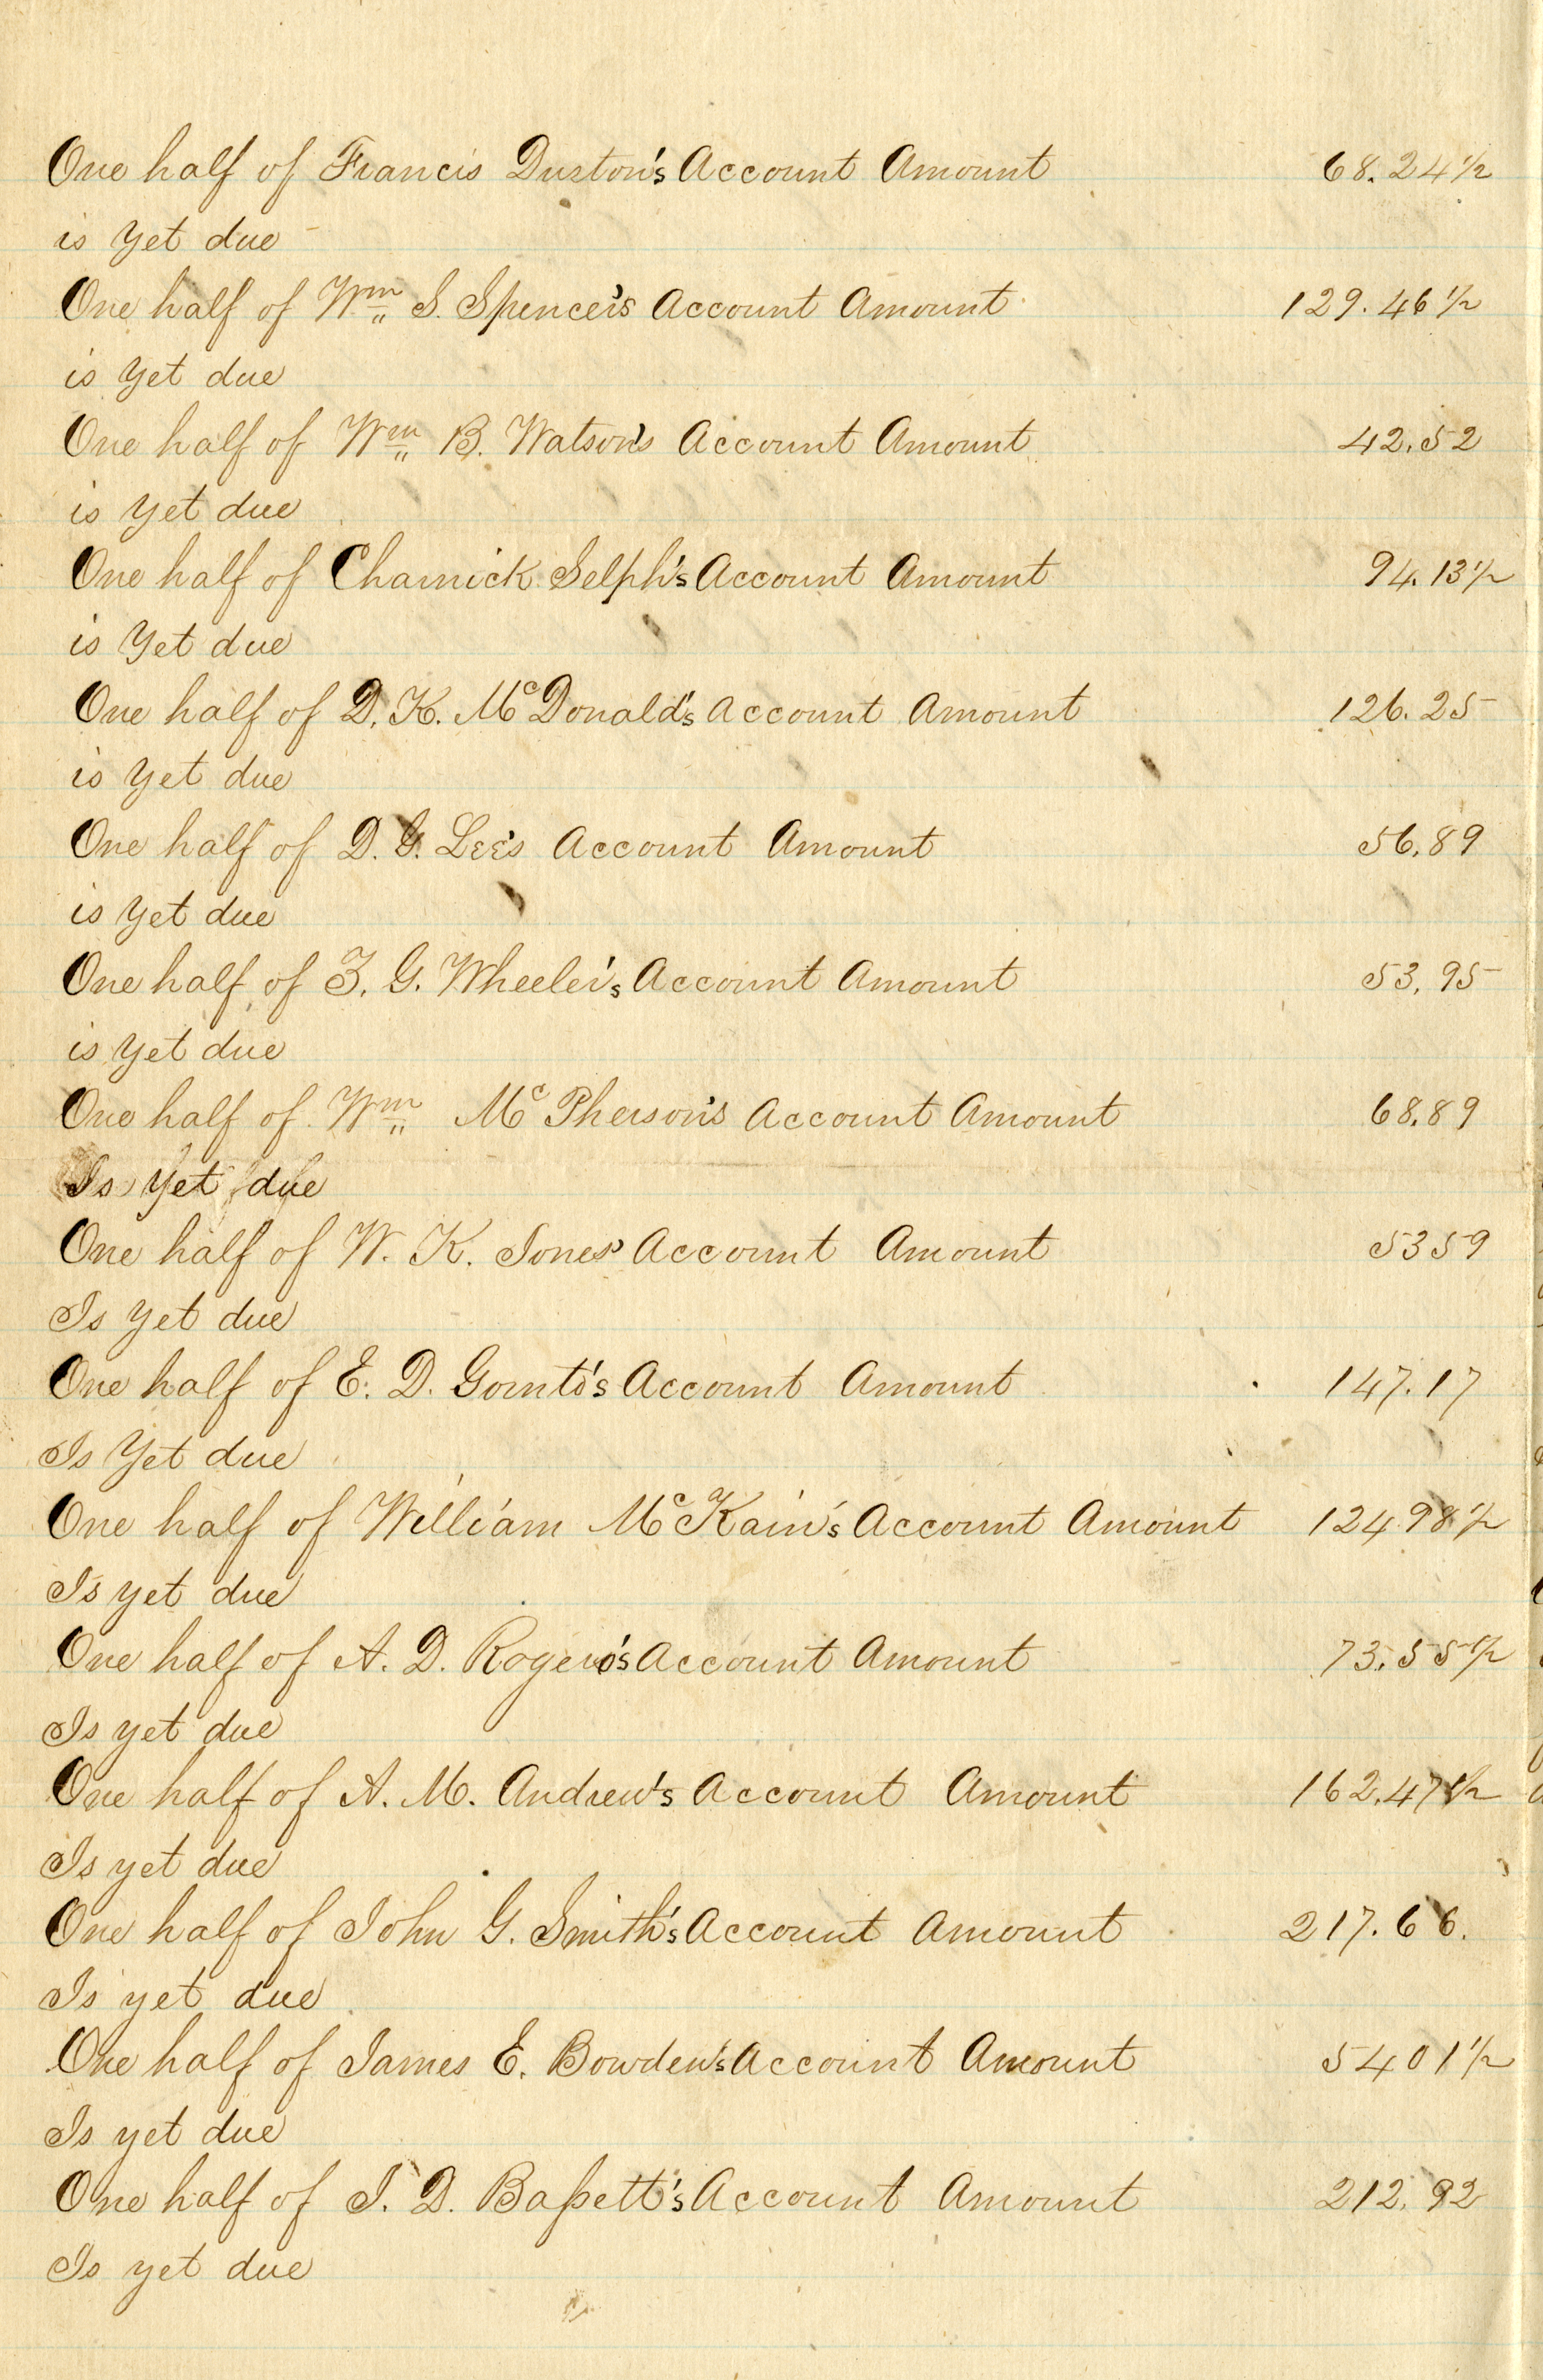 One half of Francis Durton's Account Amount 68.24½
is yet due
One half of Wm S. Spencer's Account Amount 129.46½
is yet due
One half of Wm B. Watson's Account Amount 42.52
is yet due
One half of Charnick Selph's Account Amount 94.13½
is Yet due
One half of D. K. McDonald's Account Amount 126.25
is yet due
One half of D. G. Lee's Account Amount 56.89
is yet due
One half of Z. G. Wheeler's Account Amount 53.95
is yet due
One half of Wm McPherson's Account Amount 68.89
Is yet due
One half of W. K. Jones' Account Amount 53 59
Is yet due
One half of E. D. Gornto's Account Amount 147.17
Is Yet due
One half of William McKain's Account Amount 124.98½
Is yet due
One half of A. D. Rogers's Account Amount 73.55½
Is yet due
One half of A. M. Andrew's Account Amount 162.47½
Is yet due
One half of John G. Smith's Account Amount 217.66.
Is yet due
One half of James E. Bowden's Account Amount 54 01½
Is yet due
One half of J. D. Bassett's Account Amount 212.92
Is yet due